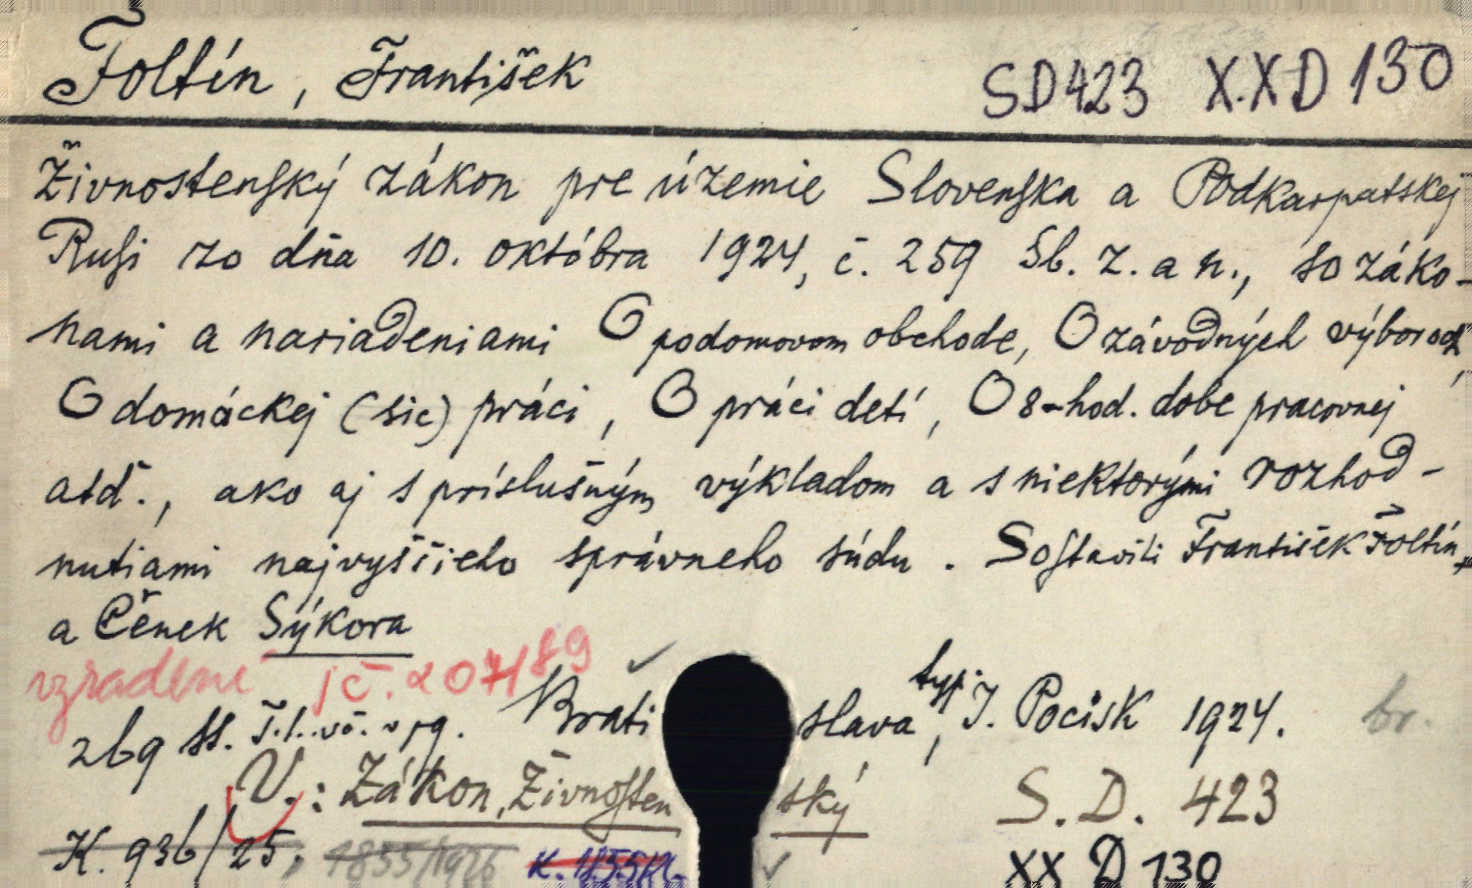 Foltín, František SD423 X.XD 130
Živnostenský zákon pre územie Slovenska a Podkarpatskej
Rusi zo dňa 10. októbra 1924, č. 259 Sb. z. a n., so záko-
nami a nariadeniami O podomovom obchode, O závodných výboroch,
O domáckej (sic) práci, O práci detí, O 8-hod. dobe pracovnej
atď., ako aj s príslušným výkladom a s niektorými rozhod-
nutiami najvyššieho správneho súdu. Sostavili František Foltín
a Čeněk Sýkora
vzradené č. 207/89
Brati slava, typ. I. Pocisk 1924. br.
V.: Zákon, Živnosten ský S.D. 423
K. 936/25, 1855/1926 K. 1855/ XX D 130